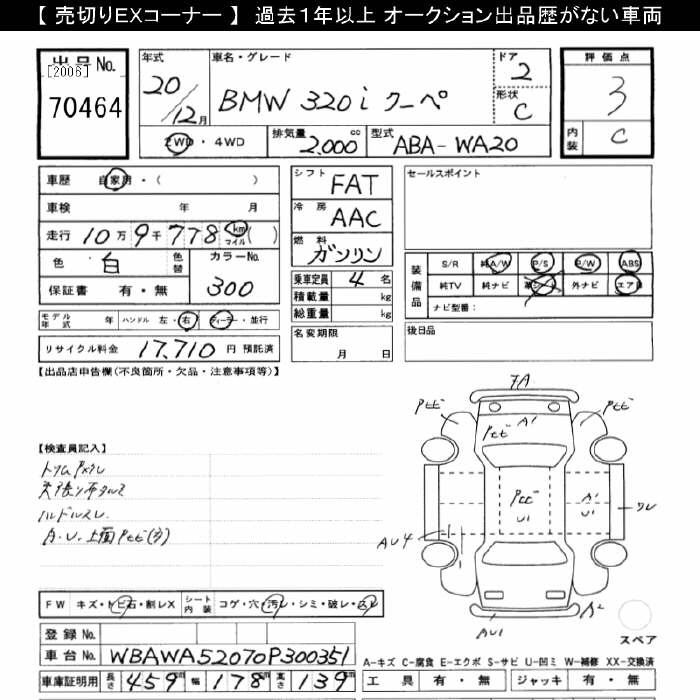 【 売切りEXコーナー 】 過去1年以上 オークション出品歴がない車両
出品No.
[2006]
70464
年式
20/12月
車名・グレード
BMW 320i クーペ
ドア
2
形状
C
2WD・4WD
排気量
2.000 cc
型式
ABA-WA20
評価点
3
内装
C
車歴 自家用・( )
車検 年 月
走行 10万9千778 km マイル ( )
色 白 色替
カラーNo.
300
保証書 有・無
モデル年式 年 ハンドル 左・右 ディーラー・並行
リサイクル料金 17,710 円 預託済
シフト FAT
冷房 AAC
燃料 ガソリン
乗車定員 4 名
積載量 kg
総重量 kg
名変期限
月 日
セールスポイント
装備品
S/R 純A/W P/S P/W ABS
純TV 純ナビ 革シート 外ナビ エアB
ナビ型番:
後日品
【出品店申告欄(不良箇所・欠品・注意事項等)】
【検査員記入】
ハンドルスレ
A・U 上面Pヒビ(多)
FW キズ・トビ石・割レX シート内装 コゲ・穴・汚レ・シミ・破レ・スレ
登録No.
車台No. WBAWA52070P300351
車庫証明用 長さ 459cm 幅 178cm 高さ 139cm
FA
Pヒビ
Pヒビ
Pヒビ
A1
Pヒビ
U1
A1
U1
ワレ
AU4
AU1
A2
スペア
A-キズ C-腐食 E-エクボ S-サビ U-凹ミ W-補修 XX-交換済
工具 有・無 ジャッキ 有・無